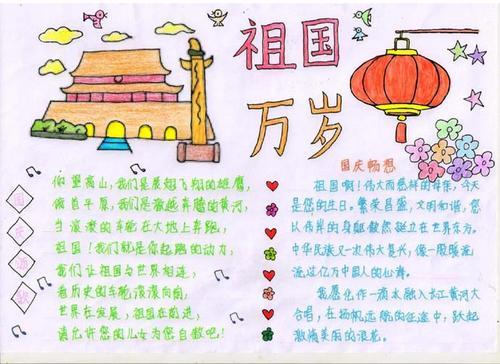 祖国
万岁
国庆畅想
国
庆
仰望高山，我们是展翅飞翔的雄鹰，
俯首平原，我们是激越奔腾的黄河，
当滚滚的车轮在大地上奔跑，
祖国！我们就是你起跑的动力，
我们让祖国与世界相连，
看历史的车轮滚滚向前，
世界在发展，祖国在前进，
请允许您的儿女为您自傲吧！
祖国啊！伟大而慈祥的母亲，今天
是您的生日。繁荣昌盛，文明和谐，您
以伟岸的身躯毅然挺立在世界东方。
中华民族又一次伟大复兴，像一股暖流
流过亿万中国人的心海。
我愿化作一滴水融入长江黄河大
合唱，在扬帆远航的征途中，跃起
激情美丽的浪花。